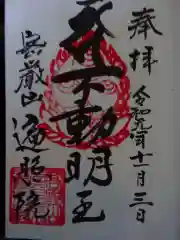 奉拝
令和元年十一月三日
不動明王
嚴山
遍照院